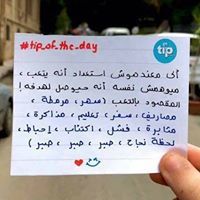 #tip_of_the_day
tip
أى معندهوش استعداد أنه يتعب ،
ميوهمش نفسه أنه حيوصل لهدفه !
المقصود بالتعب ( سهر ، مرمطة ،
مصاريف ، سفر ، تعليم ، مذاكرة ،
مثابرة ، فشل ، اكتئاب ، إحباط ،
لحظة نجاح ، صبر ، صبر ، صبر )